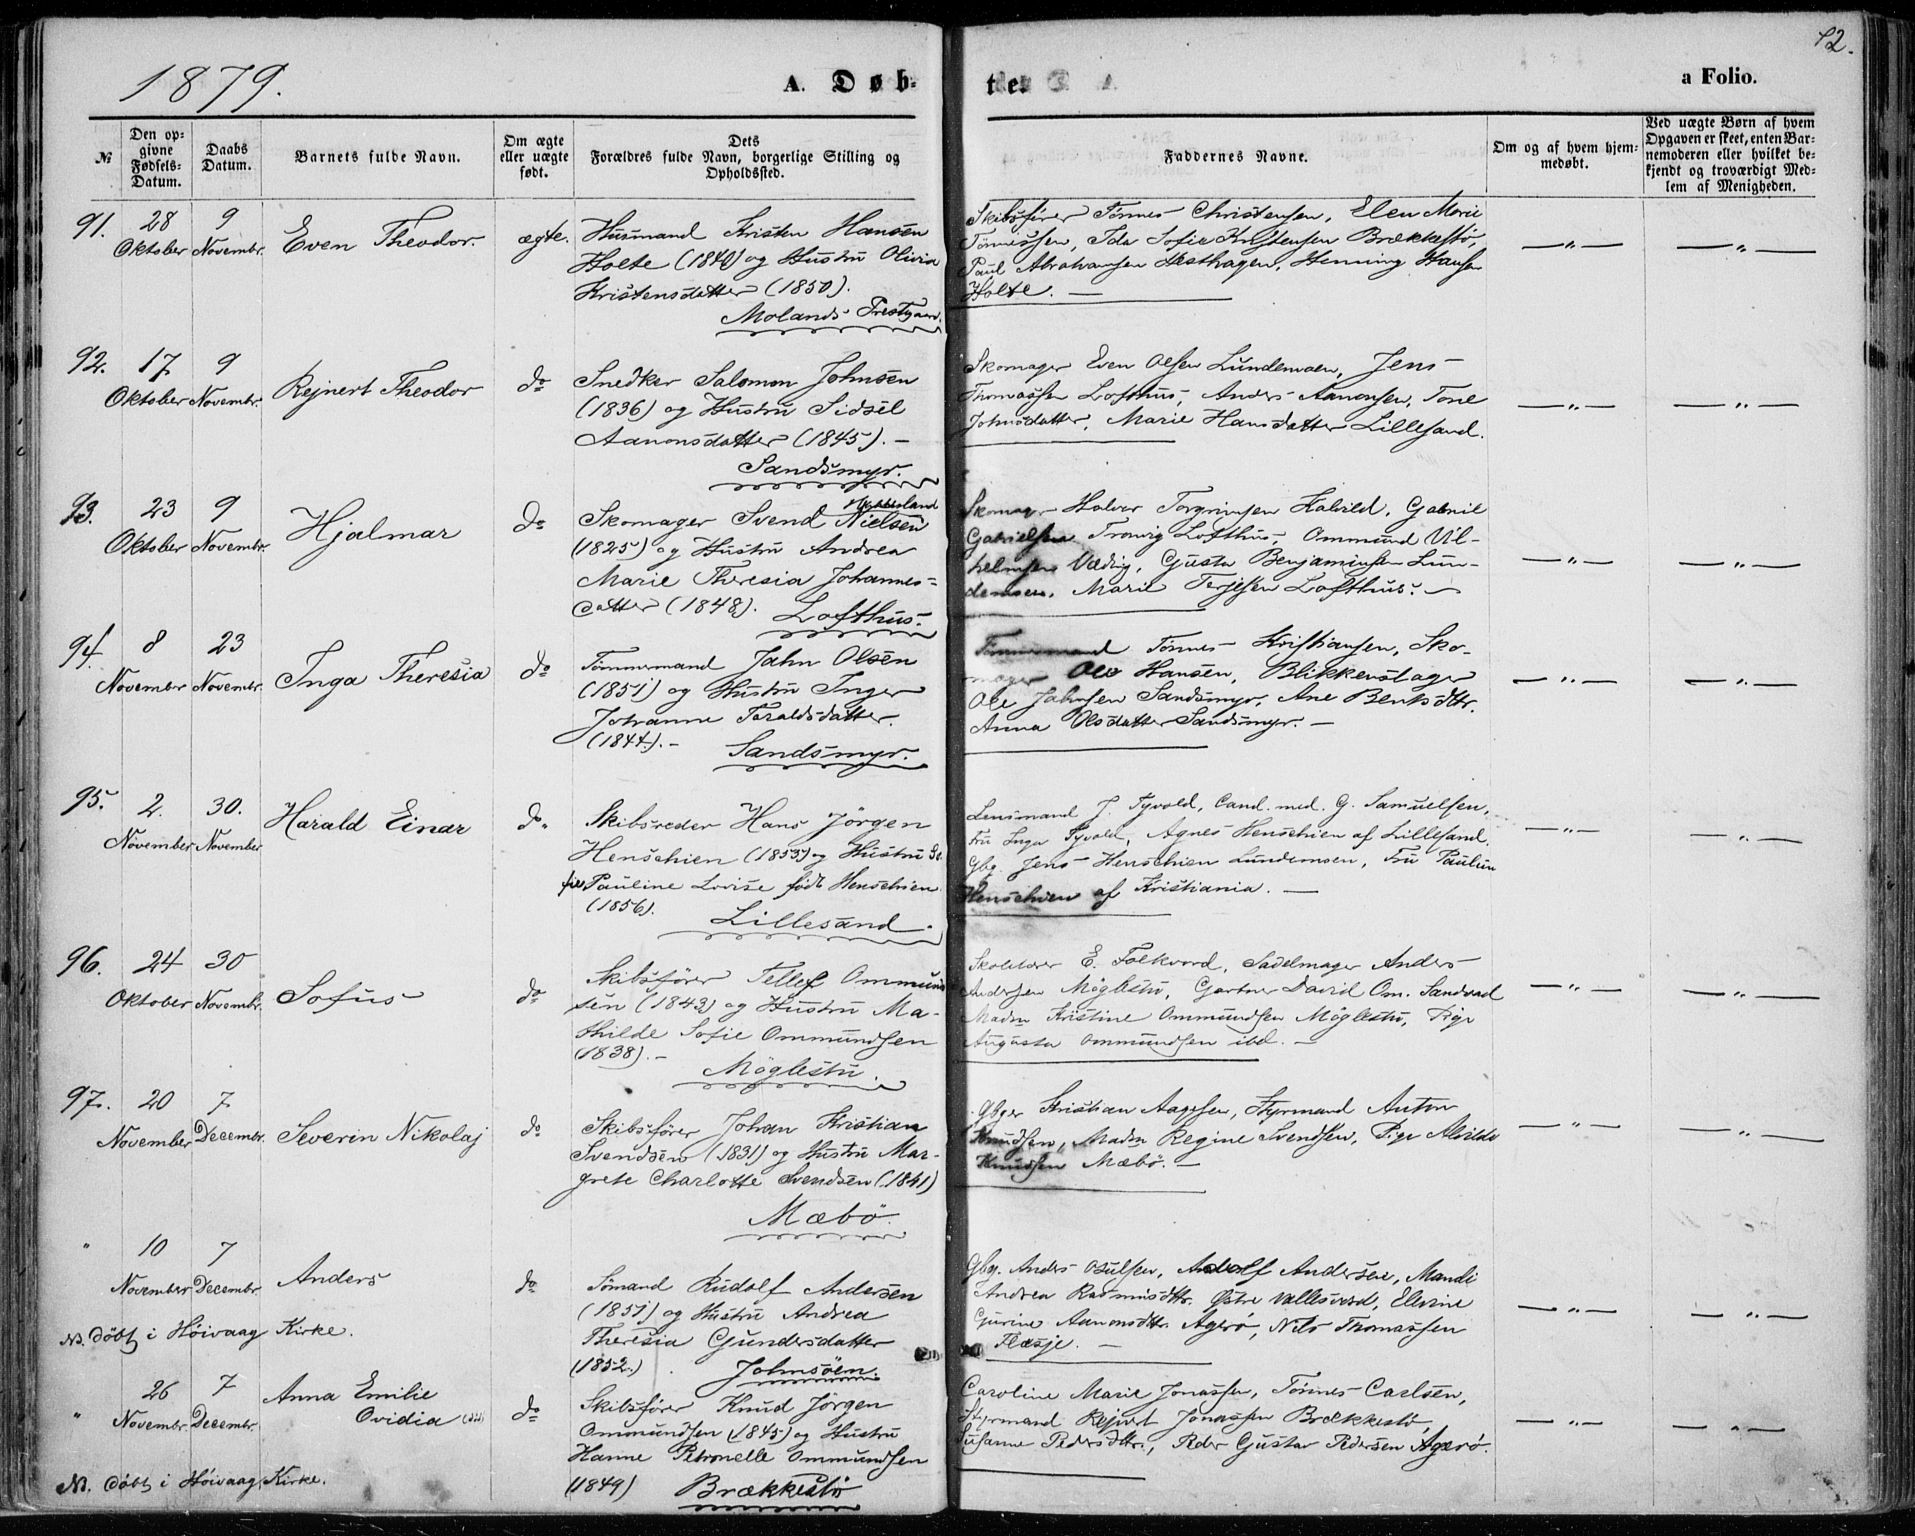 12.
1879.
A. Døb-
te.
a Folio.
№
Den op-
givne
Fødsels-
Datum.
Daabs
Datum.
Barnets fulde Navn.
Om ægte
eller uægte
født.
Dets
Forældres fulde Navn, borgerlige Stilling og
Opholdssted.
Faddernes Navne.
Om og af hvem hjem-
medøbt.
Ved uægte Børn af hvem
Opgaven er skeet, enten Bar-
nemoderen eller hvilket be-
kjendt og troværdigt Med-
lem af Menigheden.
91.
28
Oktober
9
Novembr.
Even Theodor.
ægte.
Husmand Kristen Hansen
Holte (1840) og Hustru Olivia
Kristensdatter (1850).
Molands Prestgaard.
Skibsfører Tønnes Christensen, Elen Marie
Tønnessen, Ida Sofie Kristensen Brækkestø,
Paul Abrahamsen Hesthagen, Henning Hansen
Holte. —
— " —
— " —
92.
17
Oktober
9
Novembr.
Rejnert Theodor
do
Snedker Salomon Johnsen
(1836) og Hustru Sidsel
Aanonsdatter (1845). —
Sandsmyr.
Skomager Even Olsen Lundemoen, Jens
Thomassen Lofthus, Anders Aanonsen, Tone
Johnsdatter, Marie Hansdatter Lillesand.
— " —
— " —
93.
23
Oktober
9
Novembr.
Hjalmar
do
Skomager Svend Nielsen
(1825) og Hustru Andrea
Marie Theresia Johannes-
datter (1848). Lofthus.
Skomager Halvor Torgrimsen Kalvild, Gabriel
Gabrielsen Tronvig Lofthus, Ommund Vil-
helmsen Vædvig, Gusta Benjaminsen Lun-
demoen, Marie Terjesen Lofthus. —
— " —
— " —
94.
8
Novembr
23
Novembr.
Inga Theresia
do
Tømmermand Jahn Olsen
(1851) og Hustru Inger
Johanne Taraldsdatter.
(1844). —
Sandsmyr.
Tømmermand Tønnes Kristiansen, Sko-
mager Ole Hansen, Blikkenslager
Ole Jahnsen Sandsmyr, Ane Bentsdttr.
Anna Olsdatter Sandsmyr. —
— " —
— " —
95.
2.
November
30.
November
Harald Einar
do.
Skibsreder Hans Jørgen
Henschien (1853) og Hustru So-
fie Pauline Lovise født Henschien
(1856).
Lillesand.
Lensmand J. Tyvold, Cand. med. G. Samuelsen,
Fru Inga Tyvold, Agnes Henschien af Lillesand.
Gbg. Jens Henschien Lundemoen, Fru Pauline
Henschien af Kristiania. —
— " —
— " —
96.
24
Oktober
30
Novembr.
Sofus
do
Skibsfører Tellef Ommund-
sen (1843) og Hustru Ma-
thilde Sofie Ommundsen
(1838). —
Møglestu.
Skolelærer E. Folkvord, Sadelmager Anders
Andersen Møglestu, Gartner David Om. Sandvad
Madm Kristine Ommundsen Møglestu, Pige
Augusta Ommundsen ibd. —
— " —
— " —
97.
20
November
7
Decembr.
Severin Nikolaj
do
Skibsfører Johan Kristian
Svendsen (1831) og Hustru Mar-
grete Charlotte Svendsen (1841)
Mæbø.
Gbger Kristian Aagesen, Styrmand Anton
Knudsen, Madm Regine Svendsen, Pige Alvilde
Knudsen Mæbø. —
— " —
— " —
"
10
November
7
Decembr.
Anders
do
Sømand Rudolf Andersen
(1851) og Hustru Andrea
Theresia Gundersdatter
(1852.)
Johnsøen.
NB. døbt i Høivaag Kirke.
Gbg. Anders Osulsen, Adolf Andersen, Mandi
Andrea Rasmusdttr. Østre Vallesverd, Elevine
Gurine Aanonsdttr. Agerø, Nils Thomassen
Flæsje. —
— " —
— " —
"
26
Novembr.
7
Decembr.
Anna Emilie
Ovidia
do
Skibsfører Knud Jørgen
Ommundsen (1845) og Hustru
Hanne Petronelle Ommundsen
(1849) Brækkestø
NB. døbt i Høivaag Kirke.
Caroline Marie Jonassen, Tønnes Carlsen,
Styrmand Rejnert Jonassen Brækkestø,
Susanne Pedersdttr., Peder Gustav Pedersen Agerø.
— " —
— " —